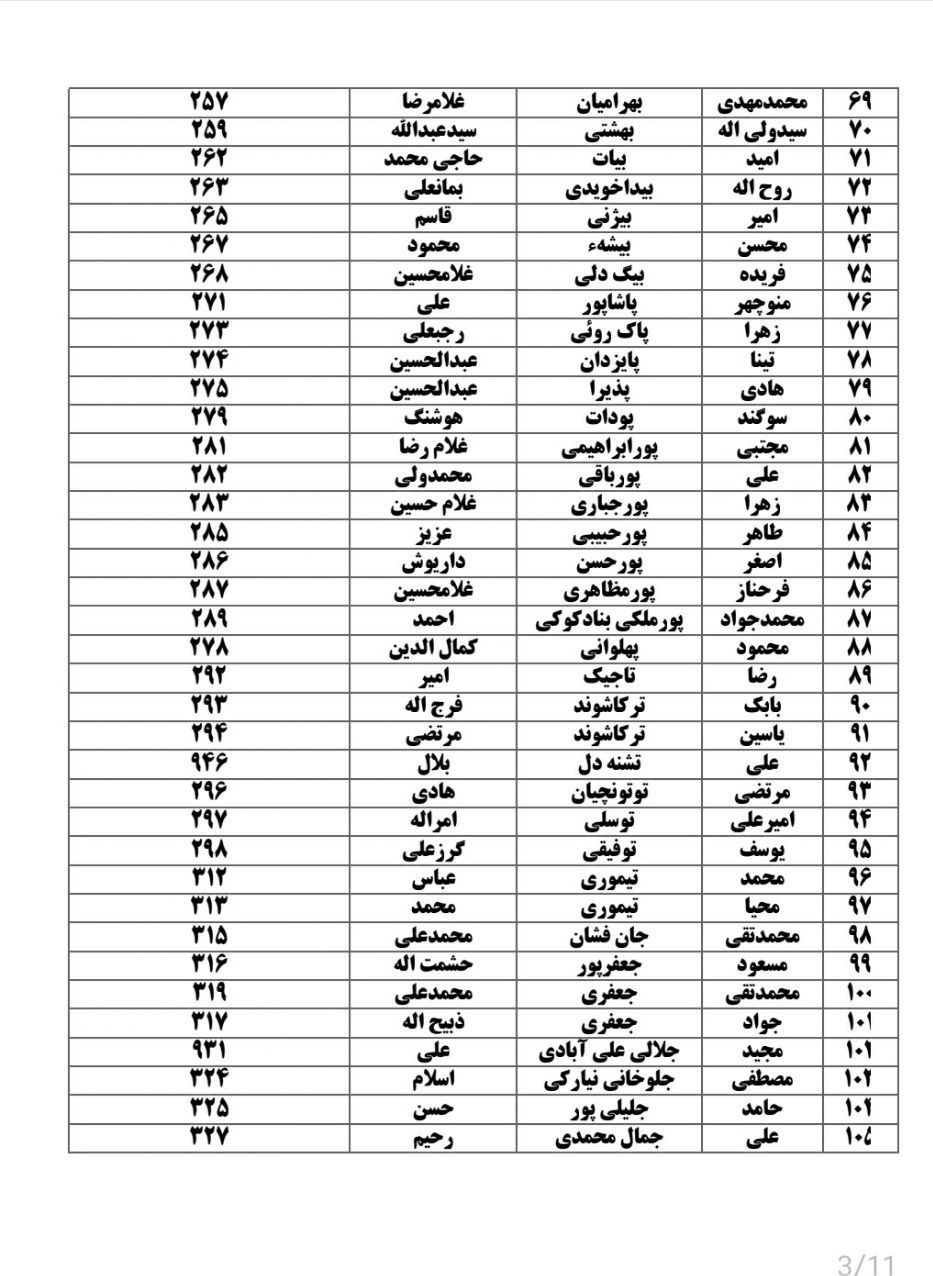 ۶۹ محمدمهدی بهرامیان غلامرضا ۲۵۷
۷۰ سیدولی اله بهشتی سیدعبدالله ۲۵۹
۷۱ امید بیات حاجی محمد ۲۶۲
۷۲ روح اله بیداخویدی بمانعلی ۲۶۳
۷۳ امیر بیژنی قاسم ۲۶۵
۷۴ محسن بیشهء محمود ۲۶۷
۷۵ فریده بیگ دلی غلامحسین ۲۶۸
۷۶ منوچهر پاشاپور علی ۲۷۱
۷۷ زهرا پاک روئی رجبعلی ۲۷۳
۷۸ تینا پایزدان عبدالحسین ۲۷۴
۷۹ هادی پذیرا عبدالحسین ۲۷۵
۸۰ سوگند پودات هوشنگ ۲۷۹
۸۱ مجتبی پورابراهیمی غلام رضا ۲۸۱
۸۲ علی پورباقی محمدولی ۲۸۲
۸۳ زهرا پورجباری غلام حسین ۲۸۳
۸۴ طاهر پورحبیبی عزیز ۲۸۵
۸۵ اصغر پورحسن داریوش ۲۸۶
۸۶ فرحناز پورمظاهری غلامحسین ۲۸۷
۸۷ محمدجواد پورملکی بنادکوکی احمد ۲۸۹
۸۸ محمود پهلوانی کمال الدین ۲۷۸
۸۹ رضا تاجیک امیر ۲۹۲
۹۰ بابک ترکاشوند فرج اله ۲۹۳
۹۱ یاسین ترکاشوند مرتضی ۲۹۴
۹۲ علی تشنه دل بلال ۹۴۶
۹۳ مرتضی توتونچیان هادی ۲۹۶
۹۴ امیرعلی توسلی امراله ۲۹۷
۹۵ یوسف توفیقی گرزعلی ۲۹۸
۹۶ محمد تیموری عباس ۳۱۲
۹۷ محیا تیموری محمد ۳۱۳
۹۸ محمدتقی جان فشان محمدعلی ۳۱۵
۹۹ مسعود جعفرپور حشمت اله ۳۱۶
۱۰۰ محمدتقی جعفری محمدعلی ۳۱۹
۱۰۱ جواد جعفری ذبیح اله ۳۱۷
۱۰۲ مجید جلالی علی آبادی علی ۹۳۱
۱۰۳ مصطفی جلوخانی نیارکی اسلام ۳۲۴
۱۰۴ حامد جلیلی پور حسن ۳۲۵
۱۰۵ علی جمال محمدی رحیم ۳۲۷
3/11